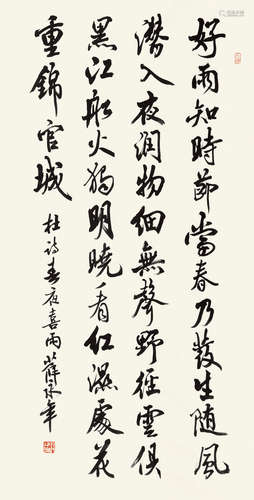 好雨知時節當春乃發生随風
潜入夜润物细無聲野徑雲俱
黑江船火獨明曉看红濕處花
重錦官城
杜诗春夜喜雨薛永年